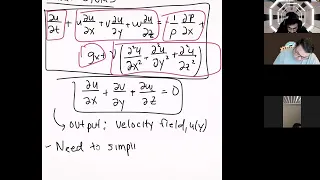 ∂u/∂t + u ∂u/∂x + v ∂u/∂y + w ∂u/∂z = 1/ρ ∂P/∂x +
gx + ν (∂²u/∂x² + ∂²u/∂y² + ∂²u/∂z²)
∂u/∂x + ∂v/∂y + ∂w/∂z = 0
↳ output: velocity field, u(y)
- Need to simpli